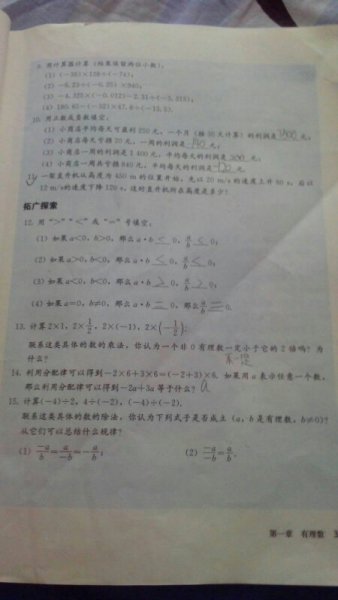 9. 用计算器计算（结果保留两位小数）：
(1) (-36)×128÷(-74)；
(2) -6.23÷(-0.25)×940；
(3) -4.325×(-0.012)-2.31÷(-5.315)；
(4) 180.65-(-32)×47.8÷(-15.5).
10. 用正数或负数填空：
(1) 小商店平均每天可盈利250元，一个月（按30天计算）的利润是7500元；
(2) 小商店每天亏损20元，一周的利润是-140元；
(3) 小商店一周的利润是1 400元，平均每天的利润是200元；
(4) 小商店一周共亏损840元，平均每天的利润是-120元.
11. 一架直升机从高度为450 m的位置开始，先以20 m/s的速度上升60 s，后以
12 m/s的速度下降120 s，这时直升机所在高度是多少？
拓广探索
12. 用“>”“<”或“=”号填空：
(1) 如果a<0，b>0，那么a·b < 0，a/b < 0；
(2) 如果a>0，b<0，那么a·b < 0，a/b < 0；
(3) 如果a<0，b<0，那么a·b > 0，a/b > 0；
(4) 如果a=0，b≠0，那么a·b = 0，那么a/b = 0.
13. 计算2×1，2×1/2，2×(-1)，2×(-1/2)；
联系这类具体的数的乘法，你认为一个非0有理数一定小于它的2倍吗？为
什么？ 不一定
14. 利用分配律可以得到-2×6+3×6=(-2+3)×6. 如果用a表示任意一个数，
那么利用分配律可以得到-2a+3a等于什么？ a
15. 计算(-4)÷2，4÷(-2)，(-4)÷(-2).
联系这类具体的数的除法，你认为下列式子是否成立（a，b是有理数，b≠0）？
从它们可以总结什么规律？
(1) -a/b=a/-b=-a/b； (2) -a/-b=a/b.
第一章 有理数